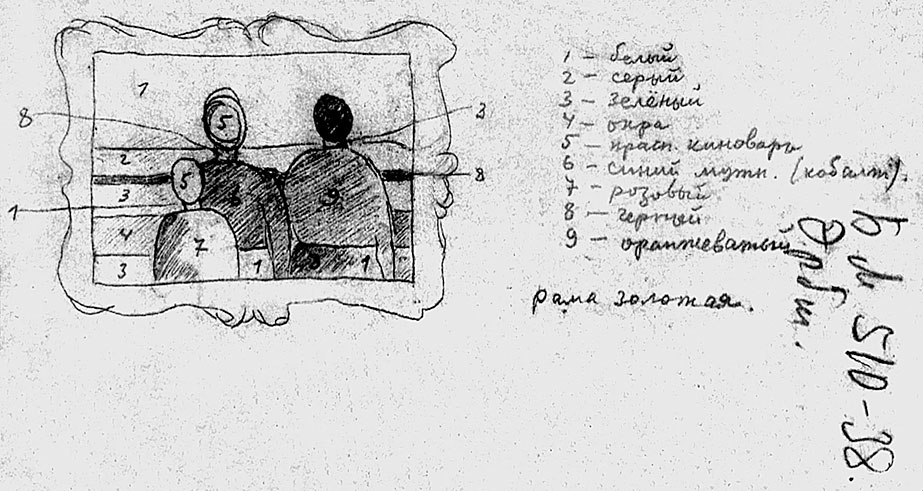 1 – белый
2 – серый
3 – зелёный
4 – охра
5 – красн. киноварь
6 – синий мутн. (кобальт).
7 – розовый
8 – черный
9 – оранжеватый
рама золотая.
1
8
5
3
2
5
8
3
6
9
1
4
7
3
1
8
1
510-38.